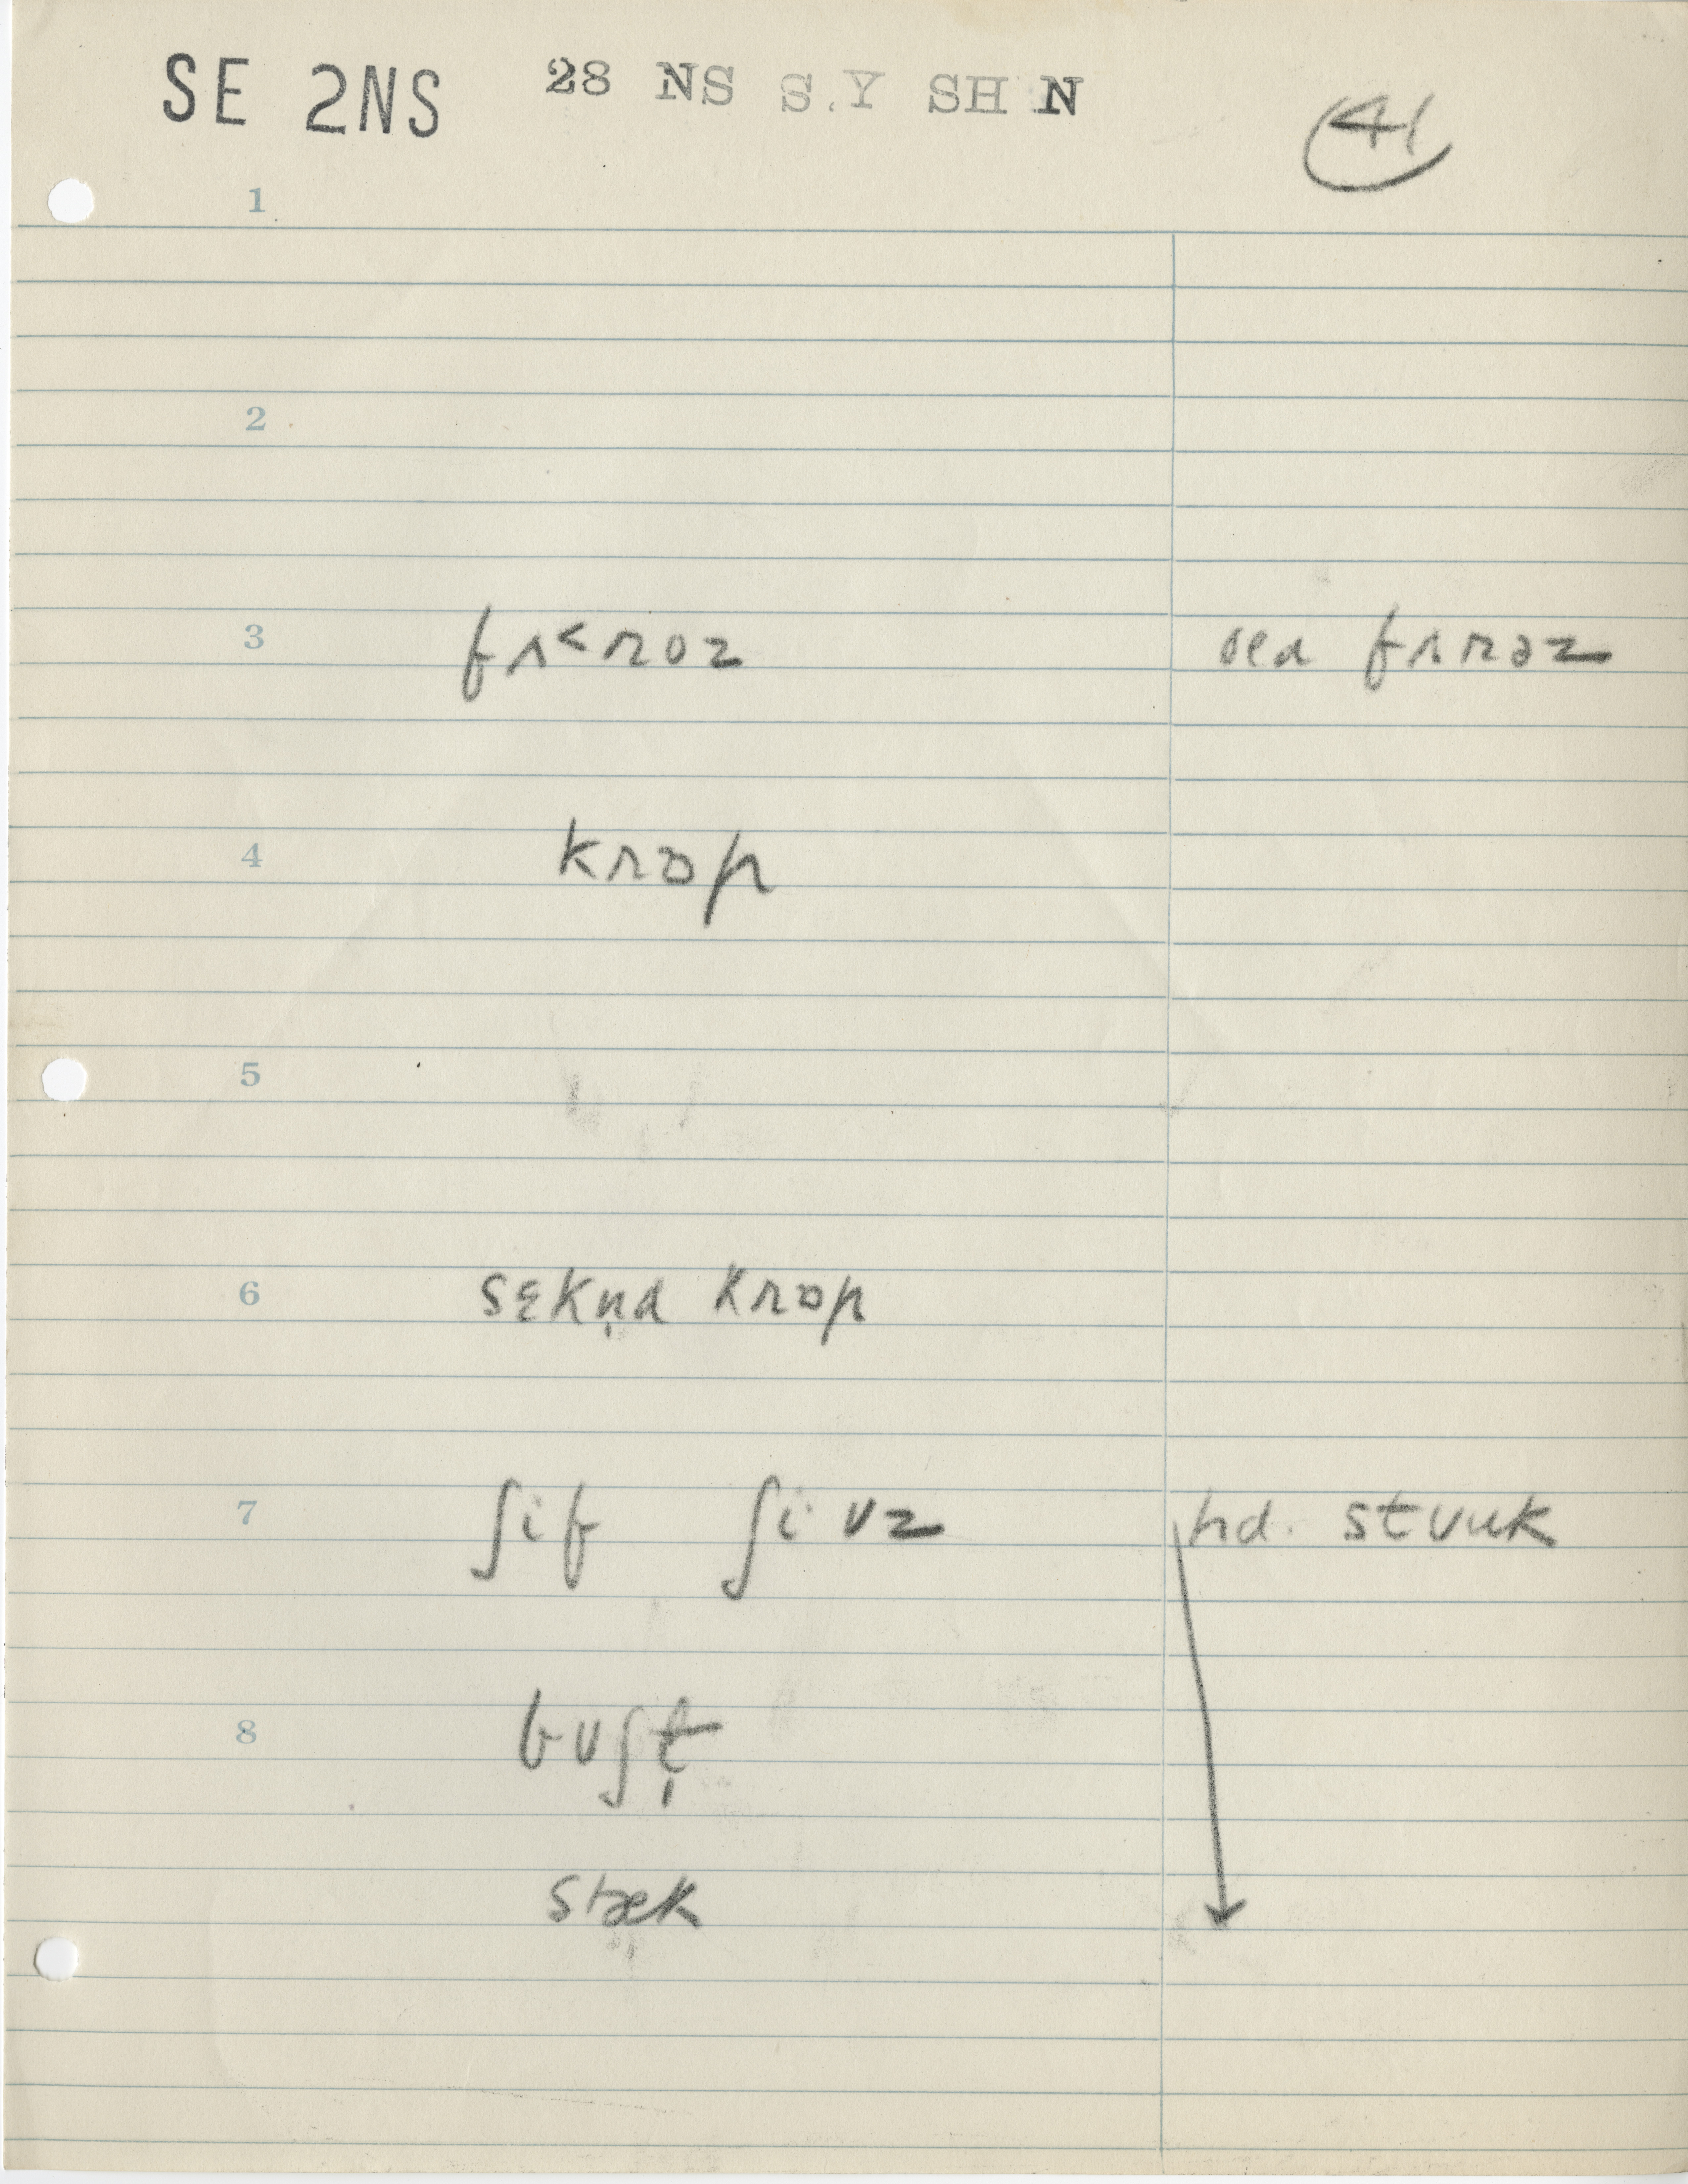 SE 2NS 28 NS S.Y SH N
41
1
2
3 fʌ<roz sed fʌrəz
4 krɒp
5
6 sɛkn̩d krɒp
7 ʃif ʃi·vz hd. stuuk
8 buʃt̩
stæk